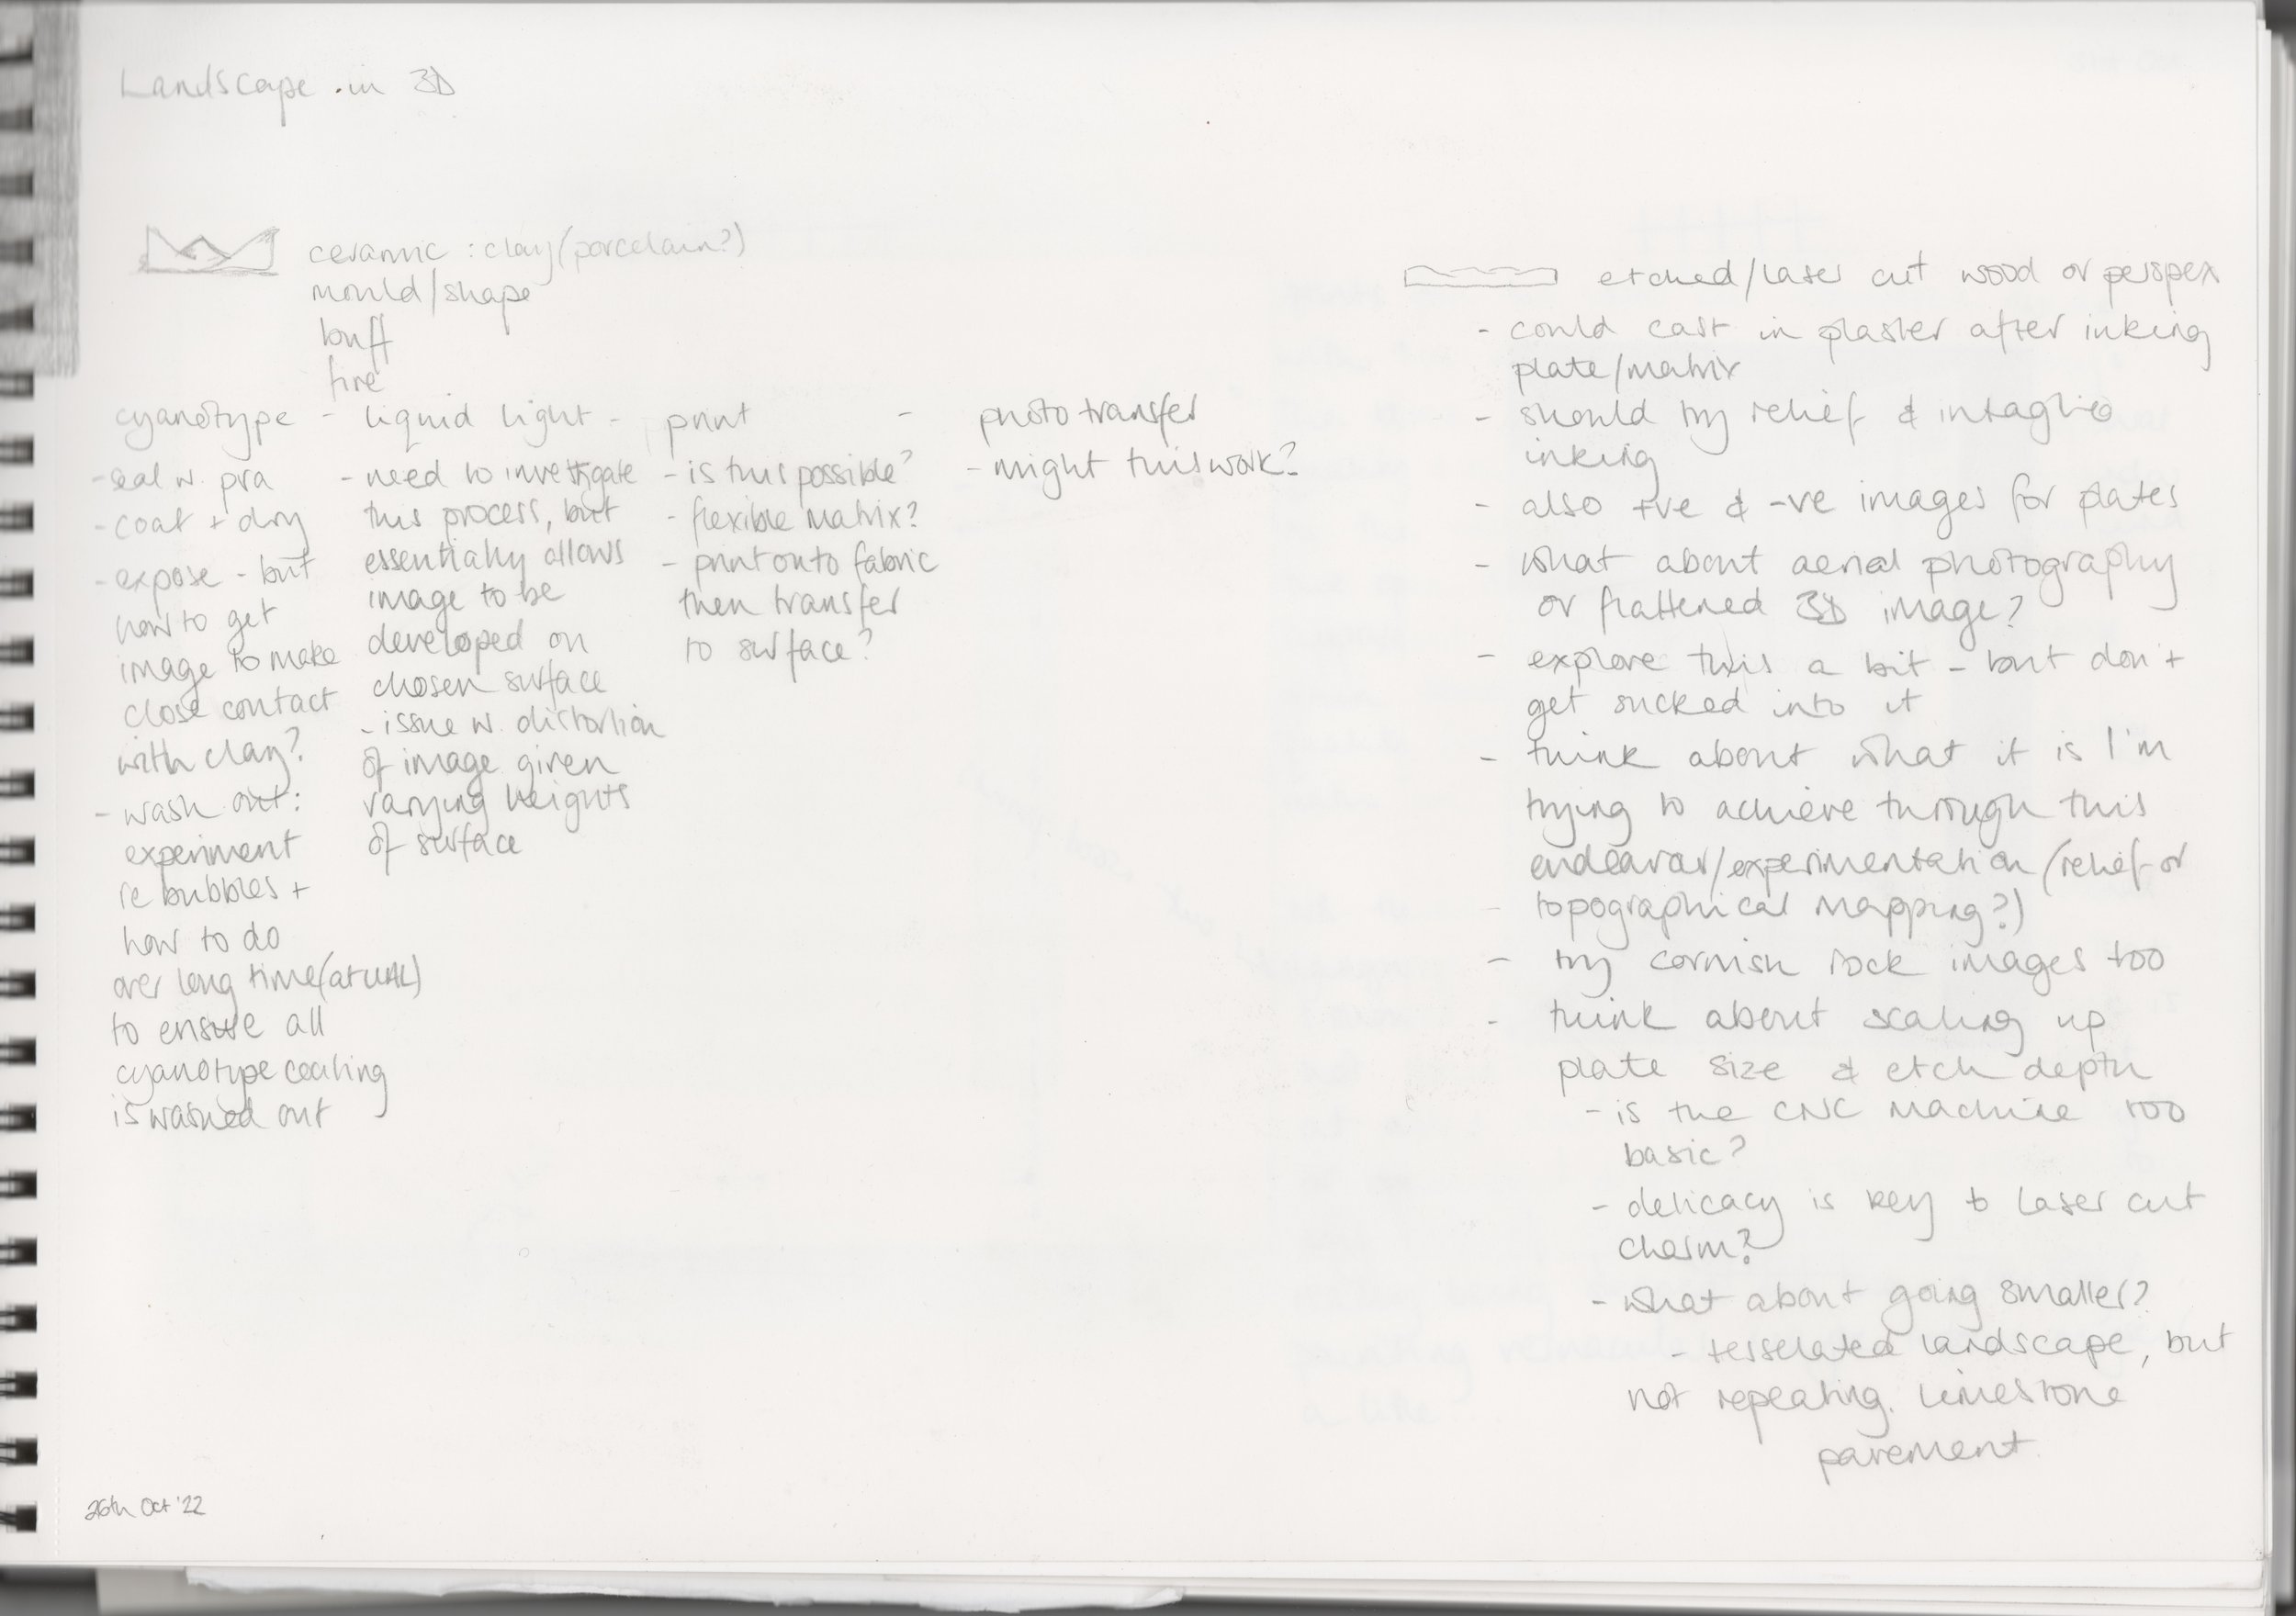 Landscape in 3D
ceramic : clay (porcelain?)
mould/shape
buff
fire
cyanotype -
- seal w. pva
- coat + dry
- expose - but
how to get
image to make
close contact
with clay?
- wash out:
experiment
re bubbles +
how to do
over long time (at UAL)
to ensure all
cyanotype coating
is washed out
liquid light -
- need to investigate
this process, but
essentially allows
image to be
developed on
chosen surface
- issue w. distortion
of image given
varying heights
of surface
print -
- is this possible?
- flexible matrix?
- print onto fabric
then transfer
to surface?
photo transfer
- might this work?
etched/laser cut wood or perspex
- could cast in plaster after inking
plate/matrix
- should try relief & intaglio
inking
- also +ve & -ve images for plates
- what about aerial photography
or flattened 3D image?
- explore this a bit - but don't
get sucked into it
- think about what it is I'm
trying to achieve through this
endeavor/experimentation (relief or
- topographical mapping?)
- try cornish rock images too
- think about scaling up
plate size & etch depth
- is the CNC machine too
basic?
- delicacy is key to laser cut
charm?
- what about going smaller?
- tesselated landscape, but
not repeating. limestone
pavement.
26th Oct '22